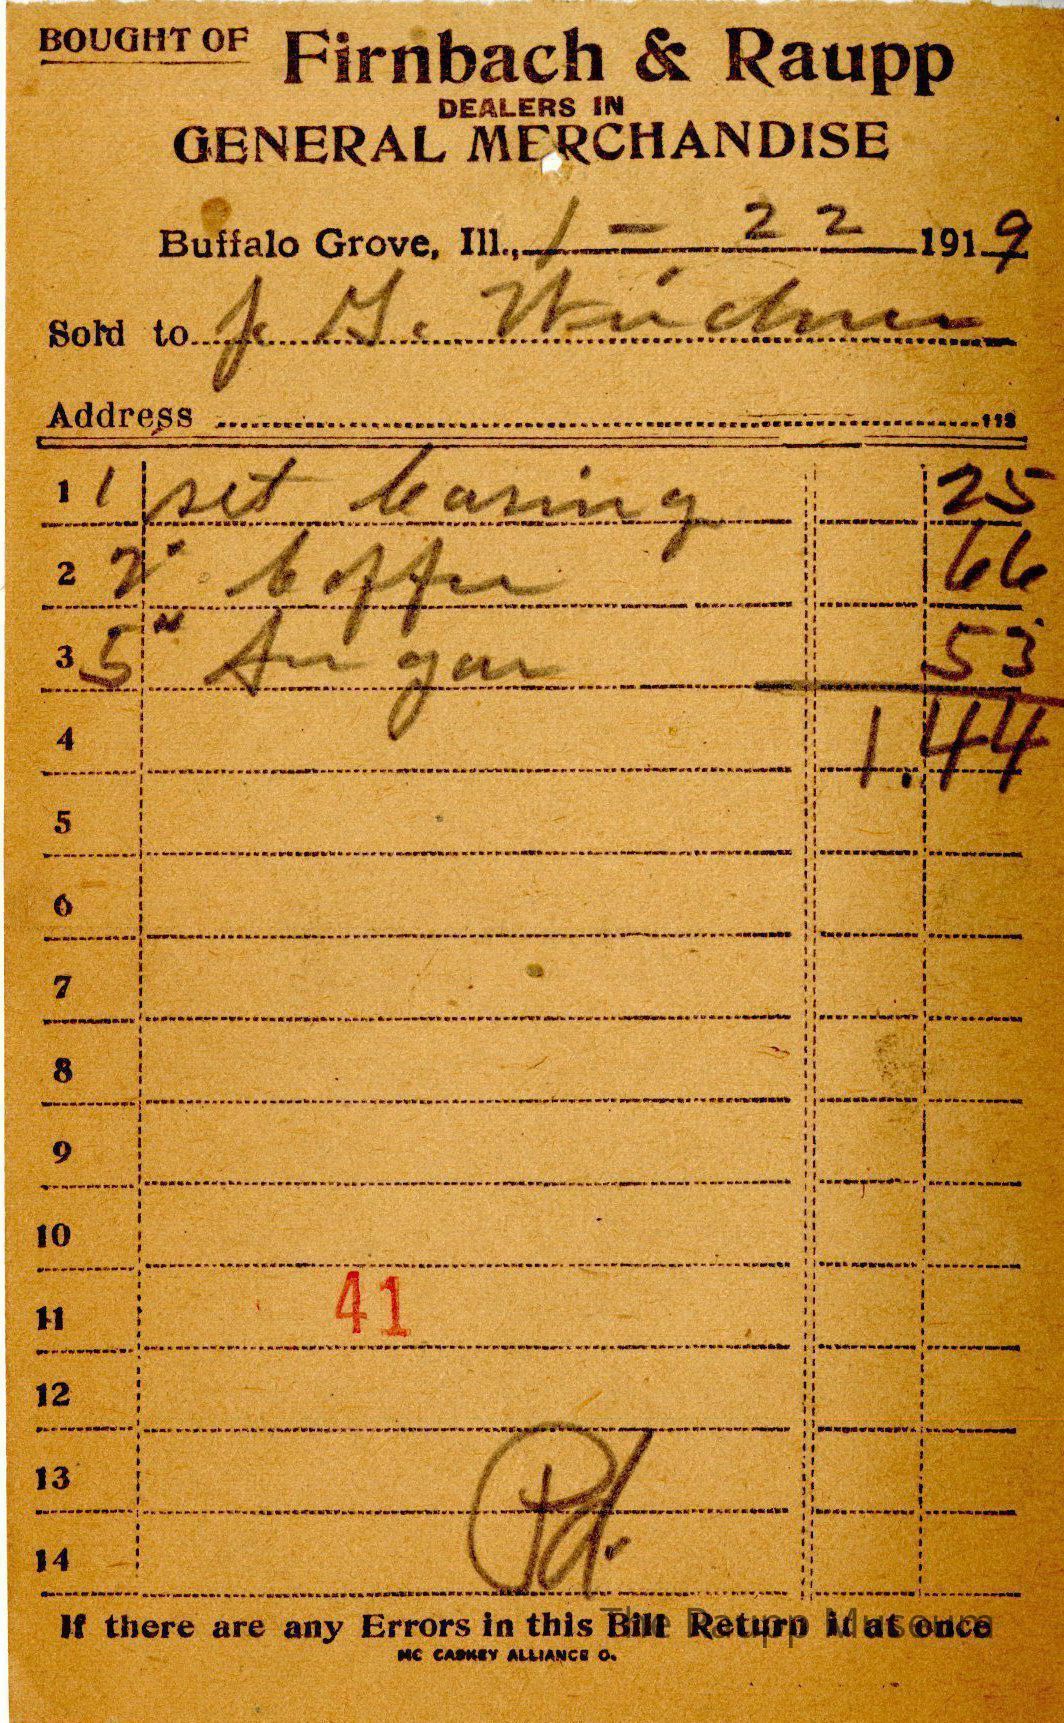 BOUGHT OF Firnbach & Raupp
DEALERS IN
GENERAL MERCHANDISE
Buffalo Grove, Ill., 1 - 22 1919
Sold to J. G. Weidner
Address
1 1 set casing 25
2 2" Coffee 66
3 5" Sugar 53
4 1.44
5
6
7
8
9
10
11 41
12
13 Pd.
14
If there are any Errors in this Bill Return it at once
The Raupp Museum
MC CASKEY ALLIANCE O.